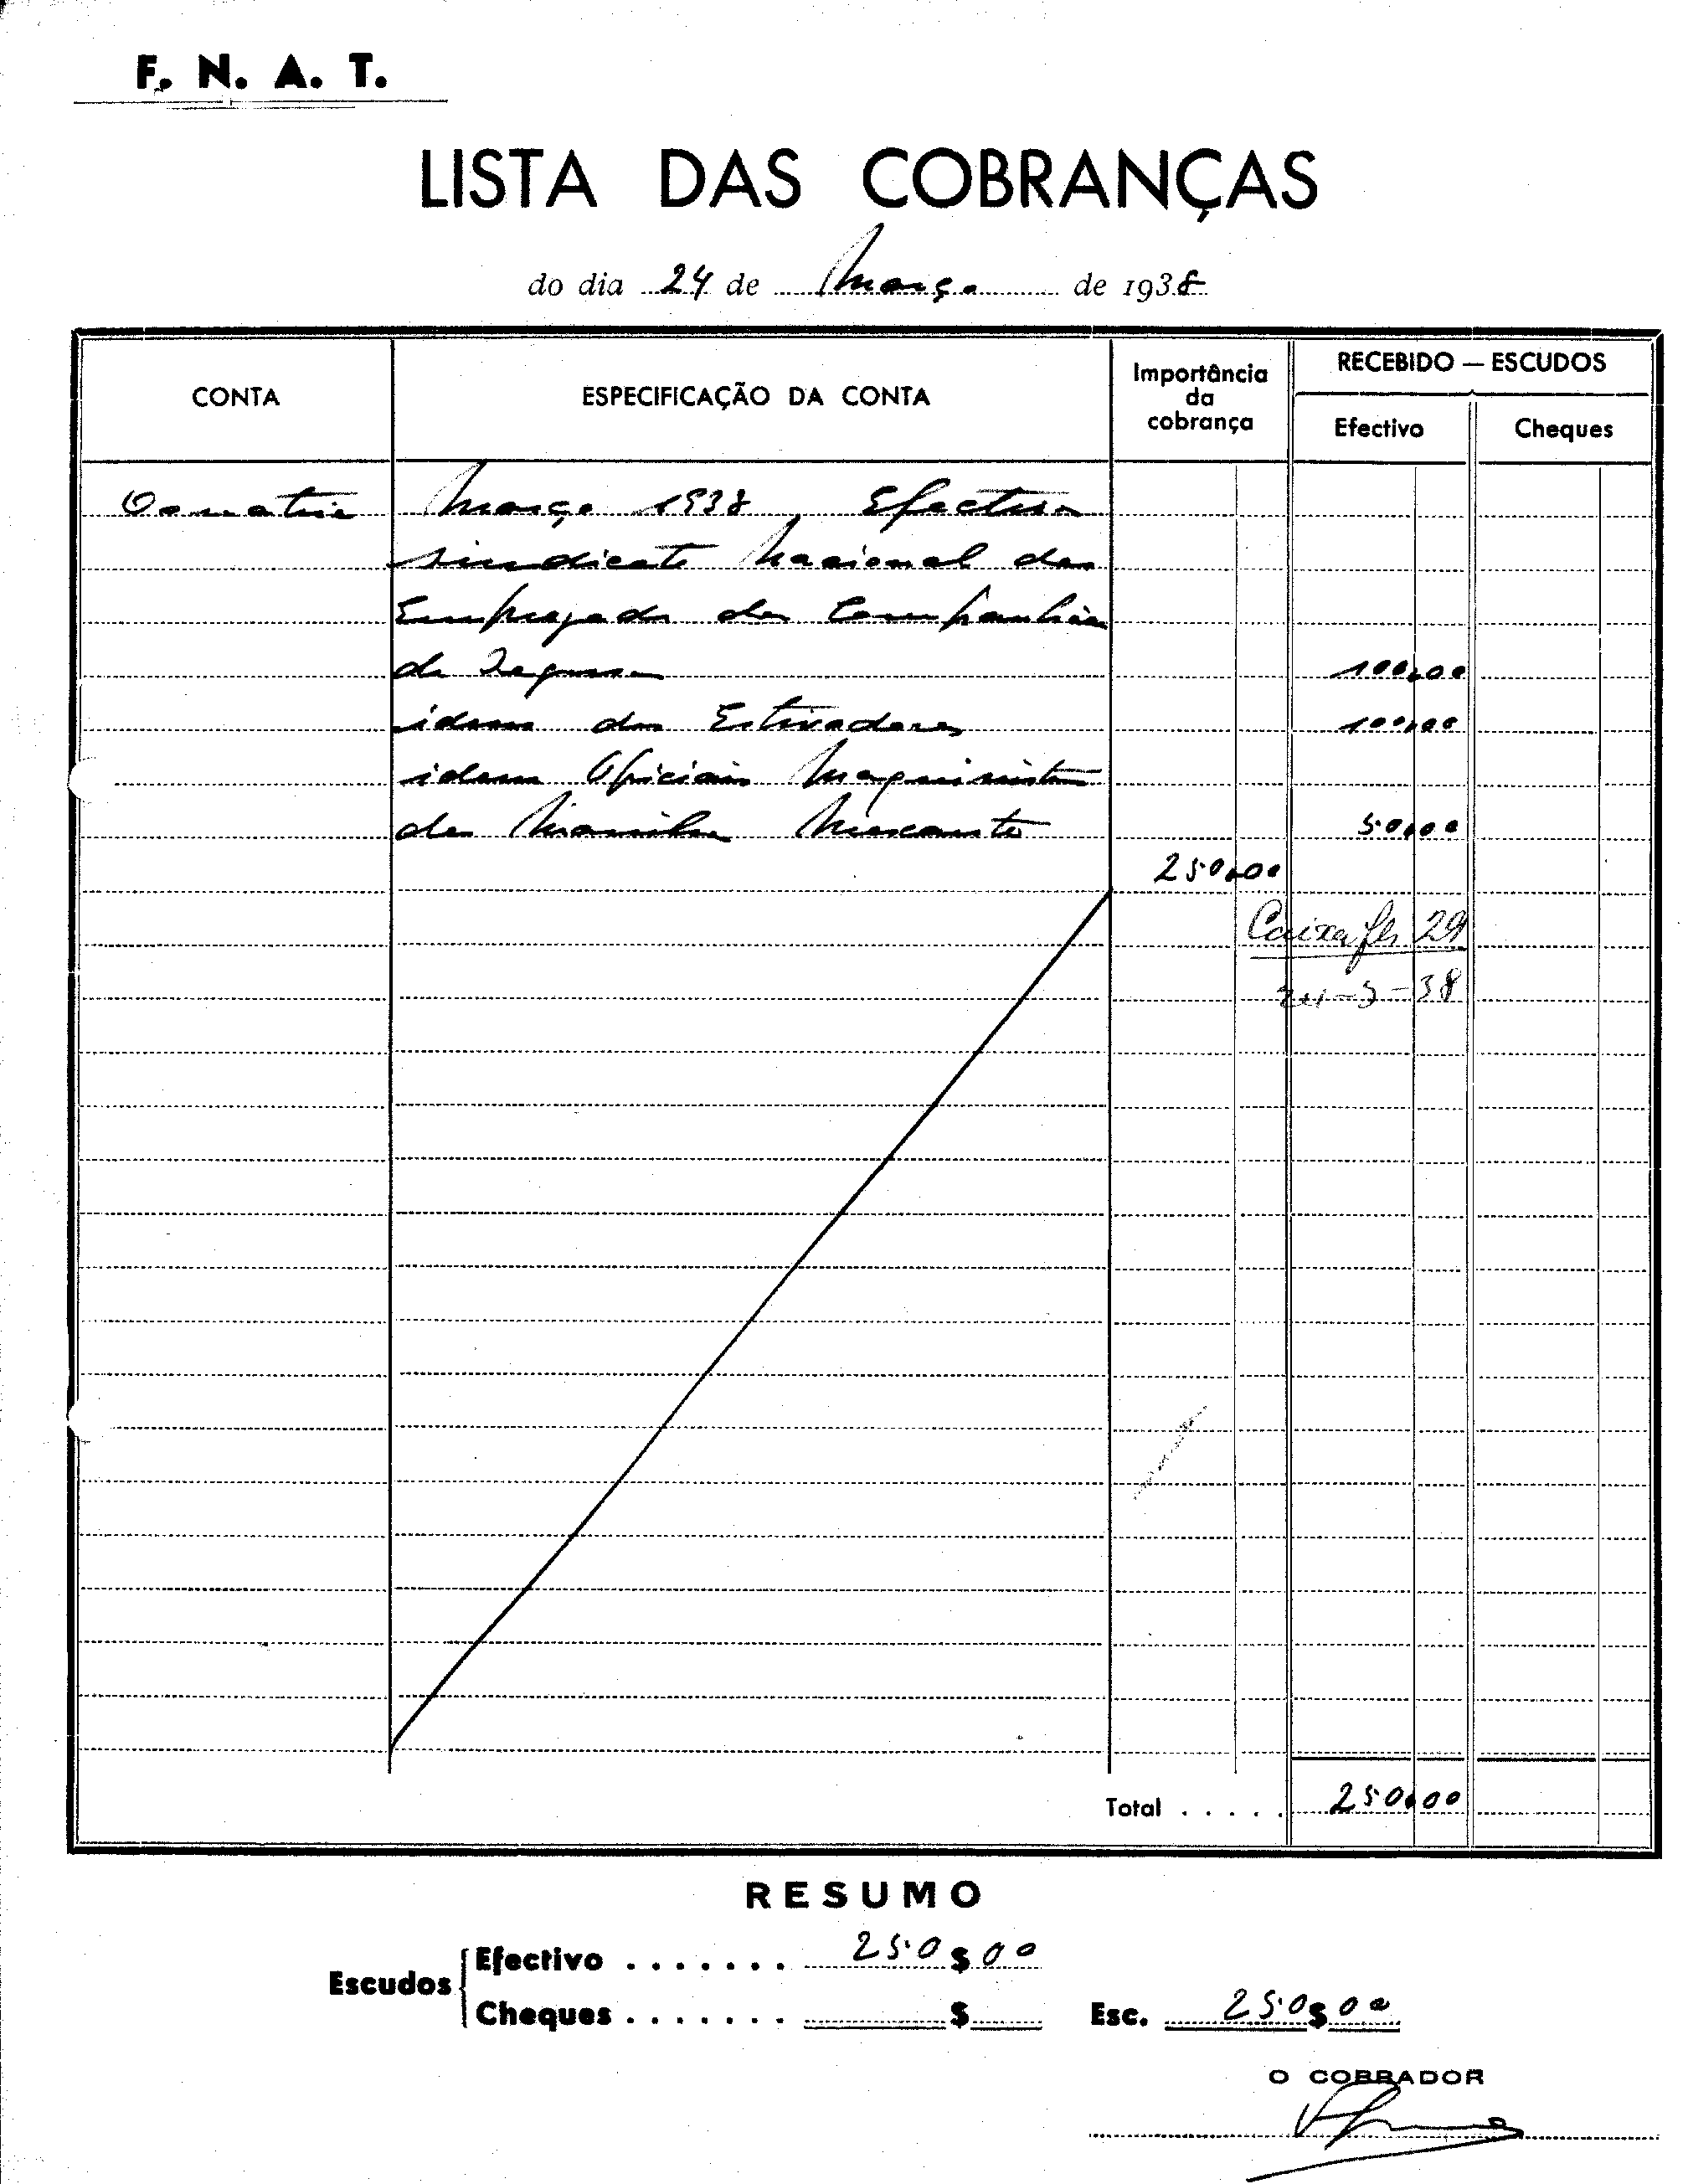 F. N. A. T.
LISTA DAS COBRANÇAS
do dia 24 de Março de 1938
CONTA
ESPECIFICAÇÃO DA CONTA
Importância
da
cobrança
RECEBIDO — ESCUDOS
Efectivo
Cheques
Março 1938 Efectivo
Sindicato Nacional dos
Empregados das Companhias
de Seguros 100,00
idem dos Estivadores 100,00
idem Oficiais Maquinistas
da Marinha Mercante 50,00
250,00
Caixa fls 29
24-3-38
Total ..... 250,00
RESUMO
Escudos
Efectivo ....... 250$00
Cheques ....... $
Esc. 250$00
O COBRADOR